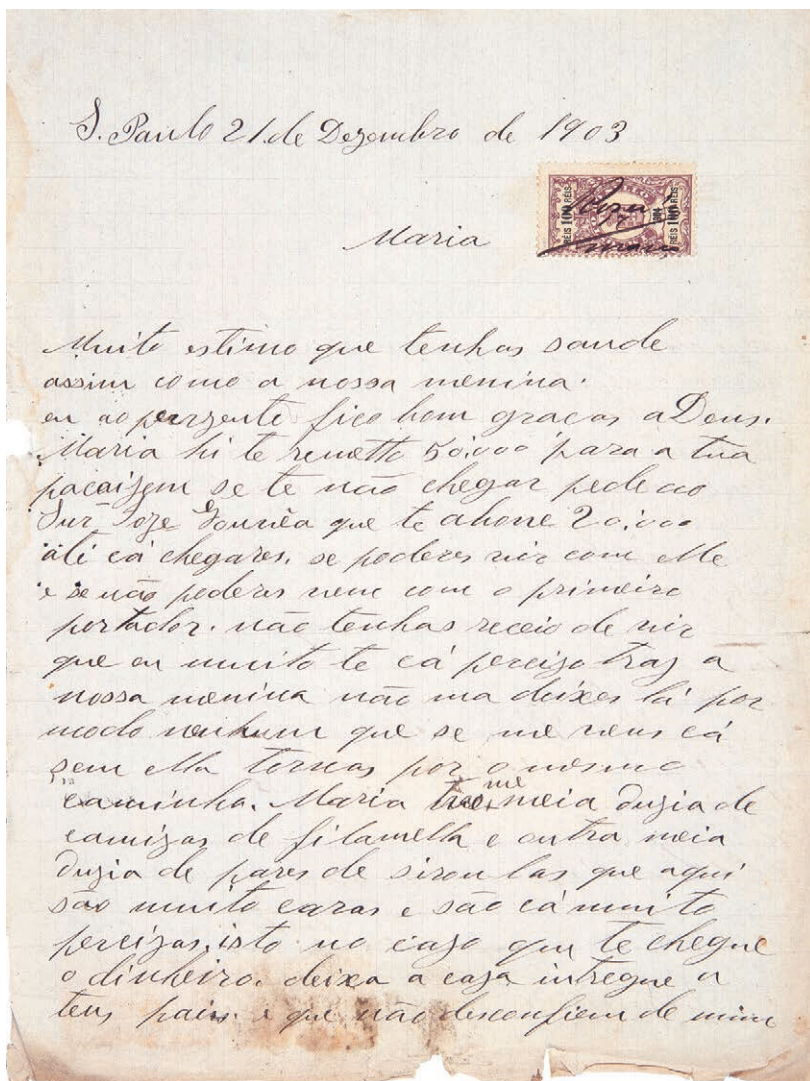 S. Paulo 21 de Dezembro de 1903
RÉIS 100 RÉIS
RÉIS 100 RÉIS
Maria
Muito estimo que tenhas saude
assim como a nossa menina.
eu ao perzente fico bom graças a Deus.
Maria hi te remetto 50:000 para a tua
paçaijem se te não chegar pede ao
Snr Joze que te abone 20:000
ati cá chegares. se poderes vir com elle
e se não poderes vem com o primeiro
portador. não tenhas receio de vir
que eu muito te cá perciso traz a
nossa menina não ma deixes lá por
modo nenhum que se me vens cá
sem ella tornas por o mesmo
caminho. Maria me meia duzia de
camizas de filanella e outra meia
duzia de pares de siroulas que aqui
são muito caras e são cá muito
percizas. isto no cazo que te chegue
o dinheiro. deixa a caza intregue a
teus pais. e que não desconfiem de mim